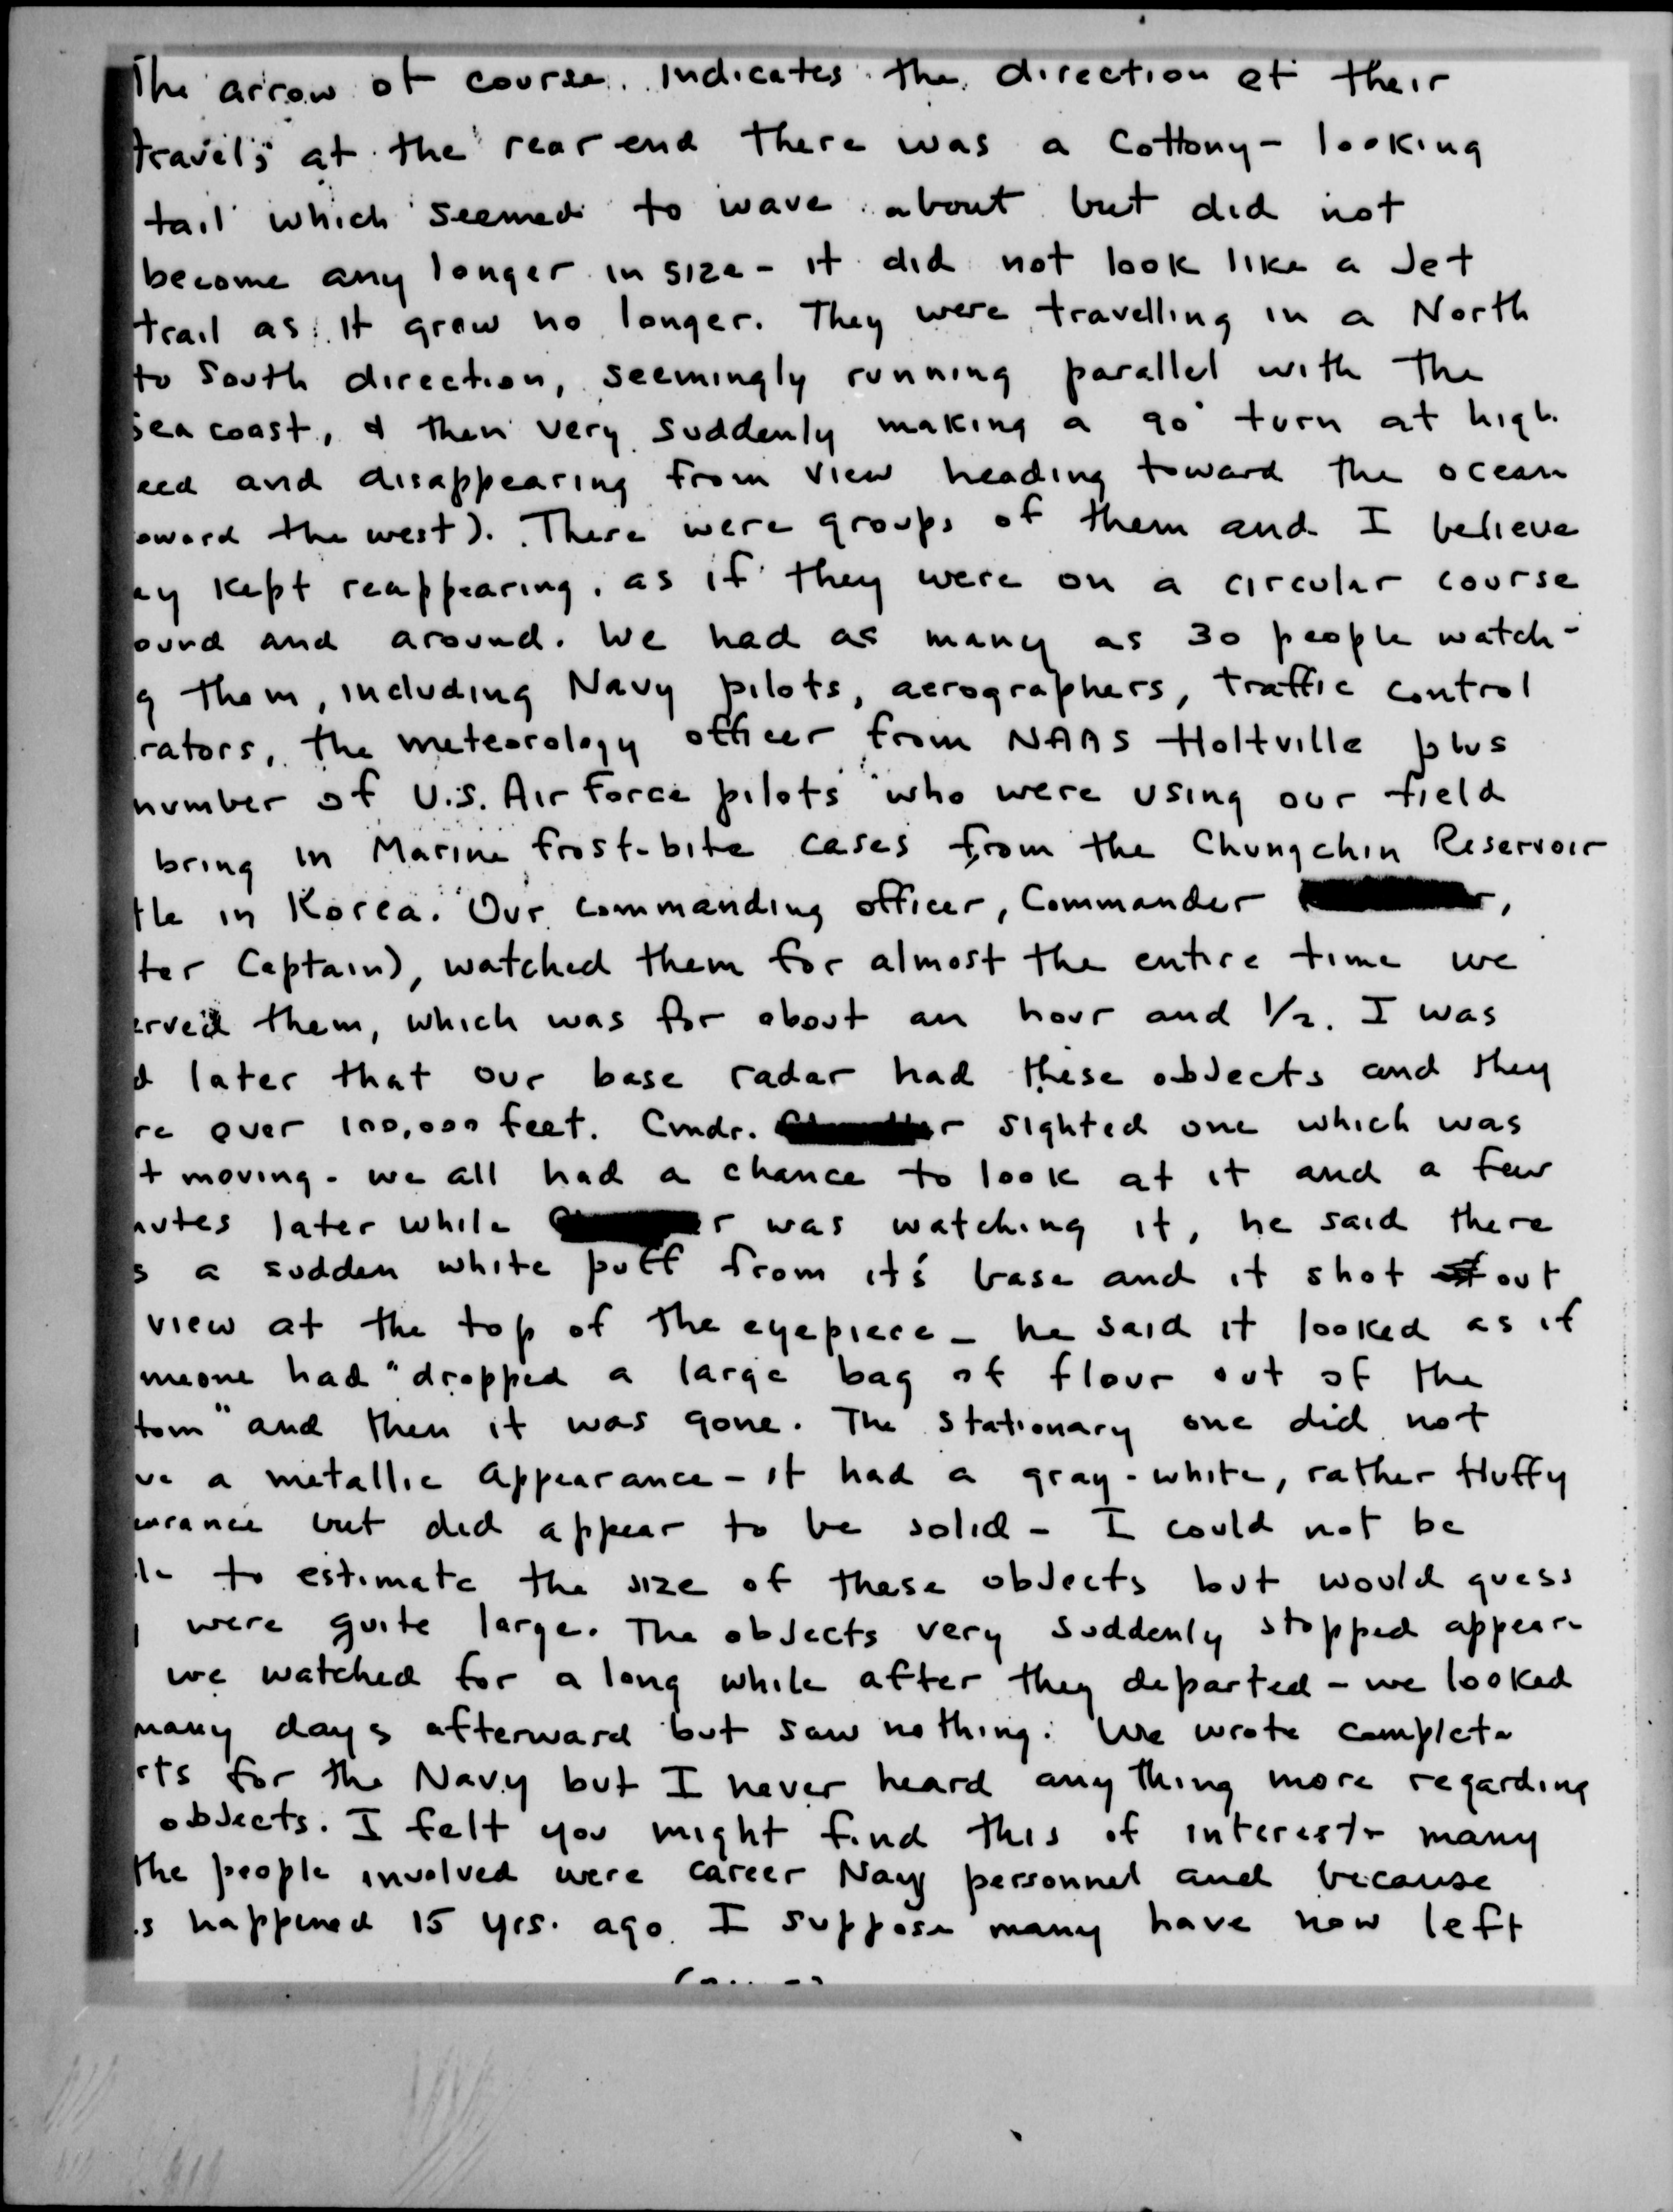 The arrow of course indicates the direction of their
travel; at the rear end there was a cottony-looking
tail which seemed to wave about but did not
become any longer in size - it did not look like a Jet
trail as it grew no longer. They were travelling in a North
to South direction, seemingly running parallel with the
sea coast, & then very suddenly making a 90° turn at high
eed and disappearing from view heading toward the ocean
oward the west). There were groups of them and I believe
ey kept reappearing, as if they were on a circular course
ound and around. We had as many as 30 people watch-
g them, including Navy pilots, aerographers, traffic control
rators, the meteorology officer from NAAS Holtville plus
number of U.S. Air Force pilots who were using our field
bring in Marine frost-bite cases from the Chungchin Reservoir
tle in Korea. Our commanding officer, Commander r,
ter Captain), watched them for almost the entire time we
erved them, which was for about an hour and 1/2. I was
d later that our base radar had these objects and they
re over 100,000 feet. Cmdr. r sighted one which was
t moving - we all had a chance to look at it and a few
nutes later while r was watching it, he said there
s a sudden white puff from it's base and it shot out
view at the top of the eyepiece - he said it looked as if
meone had "dropped a large bag of flour out of the
tom" and then it was gone. The stationary one did not
ve a metallic appearance - it had a gray-white, rather fluffy
earance but did appear to be solid - I could not be
le to estimate the size of these objects but would guess
were quite large. The objects very suddenly stopped appear-
we watched for a long while after they departed - we looked
many days afterward but saw nothing. We wrote complete
rts for the Navy but I never heard anything more regarding
objects. I felt you might find this of interest - many
the people involved were career Navy personnel and because
is happened 15 yrs. ago I suppose many have now left